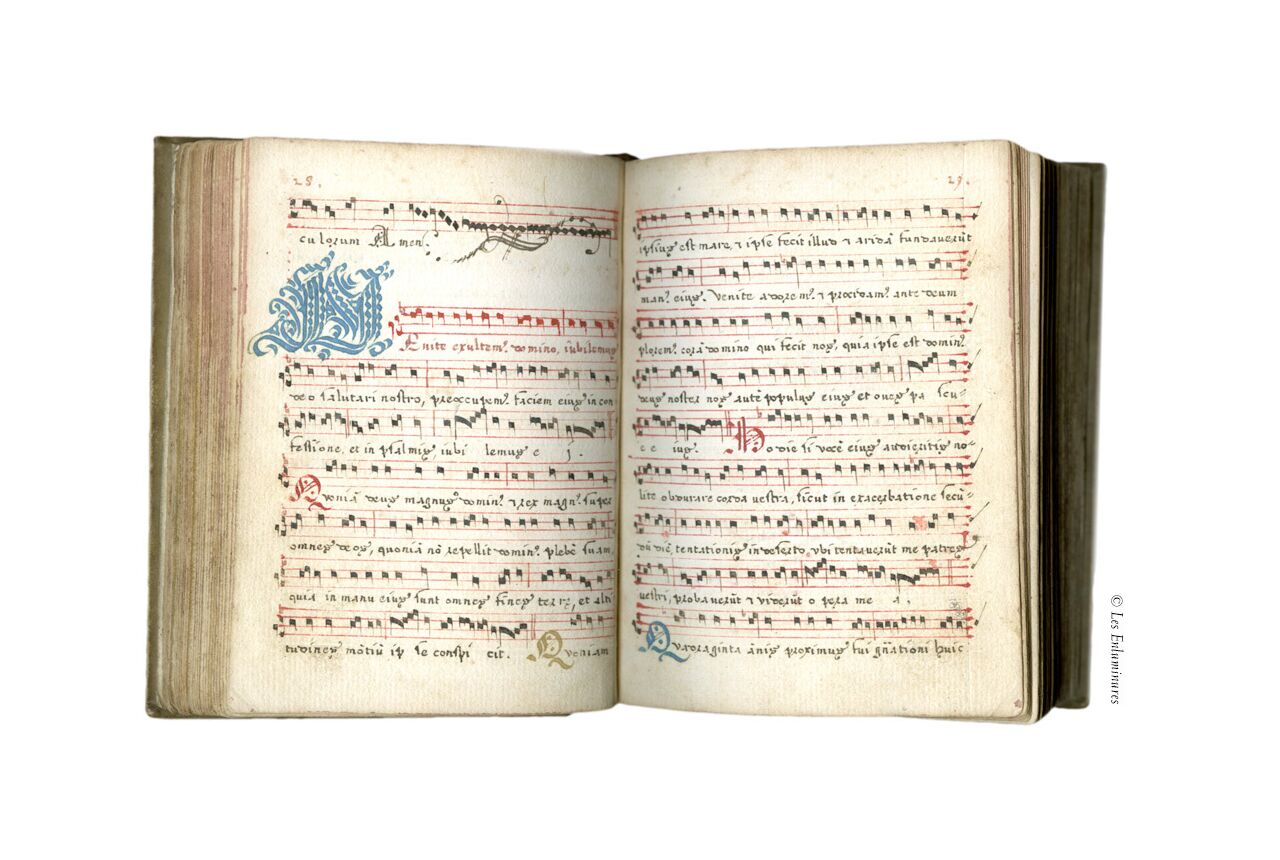 28.
culorum Amen.
Venite exultem⁹ domino, iubilem⁹
deo salutari nostro, preoccupem⁹ faciem eius in con
fessione, et in psalmis iubi lemus e j.
Quoniā deus magnus domin⁹ & rex magn⁹ super
omnes deos, quoniā nō repellit domin⁹ plebē suam,
quia in manu eius sunt omnes fines terrę, et alti
tudines mōtiū ip se conspi cit. Quoniam
29.
ipsius est mare, & ipse fecit illud & aridā fundaverūt
man⁹ eius. Venite adorem⁹ & procidam⁹ ante deum
plorem⁹ corā domino qui fecit nos, quia ipse est domin⁹
deus noster nos autē populus eius et oves pa scu=
c e ius. Hodie si vocē eius audieritis no=
lite obdurare corda vestra, sicut in exacerbatione secū=
dū diē tentationis in deserto, vbi tentaverūt me patres
vestri, probaverūt & viderūt o pera me a.
Quadraginta ānis proximus fui gn̄ationi huic
© Les Enluminures